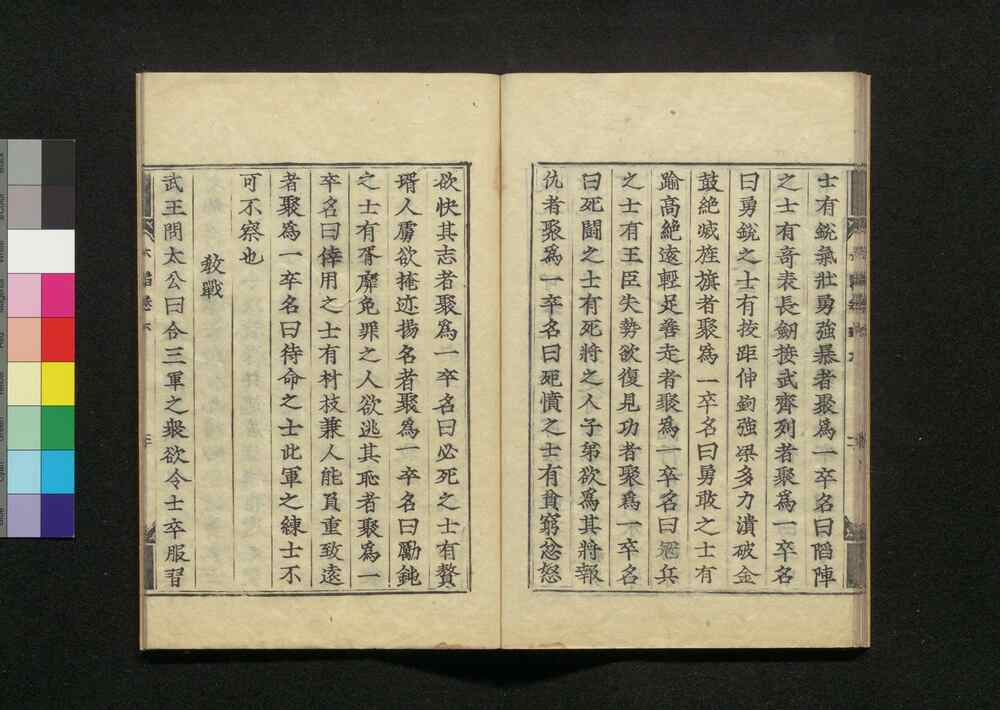 士有銳氣壯勇強暴者聚爲一卒名曰陷陣
之士有奇表長劒接武齊列者聚爲一卒名
曰勇銳之士有按距伸鉤強梁多力潰破金
鼓絶滅旌旗者聚爲一卒名曰勇敢之士有
踰高絶遠輕足善走者聚爲一卒名曰冦兵
之士有王臣失勢欲復見功者聚爲一卒名
曰死鬪之士有死將之人子弟欲爲其將報
仇者聚爲一卒名曰死憤之士有貧窮忿怒
欲快其志者聚爲一卒名曰必死之士有贅
壻人虜欲掩迹揚名者聚爲一卒名曰勵鈍
之士有胥靡免罪之人欲逃其恥者聚爲一
卒名曰倖用之士有材技兼人能負重致遠
者聚爲一卒名曰待命之士此軍之練士不
可不察也
敎戰
武王問太公曰合三軍之衆欲令士卒服習
六韜卷六
三